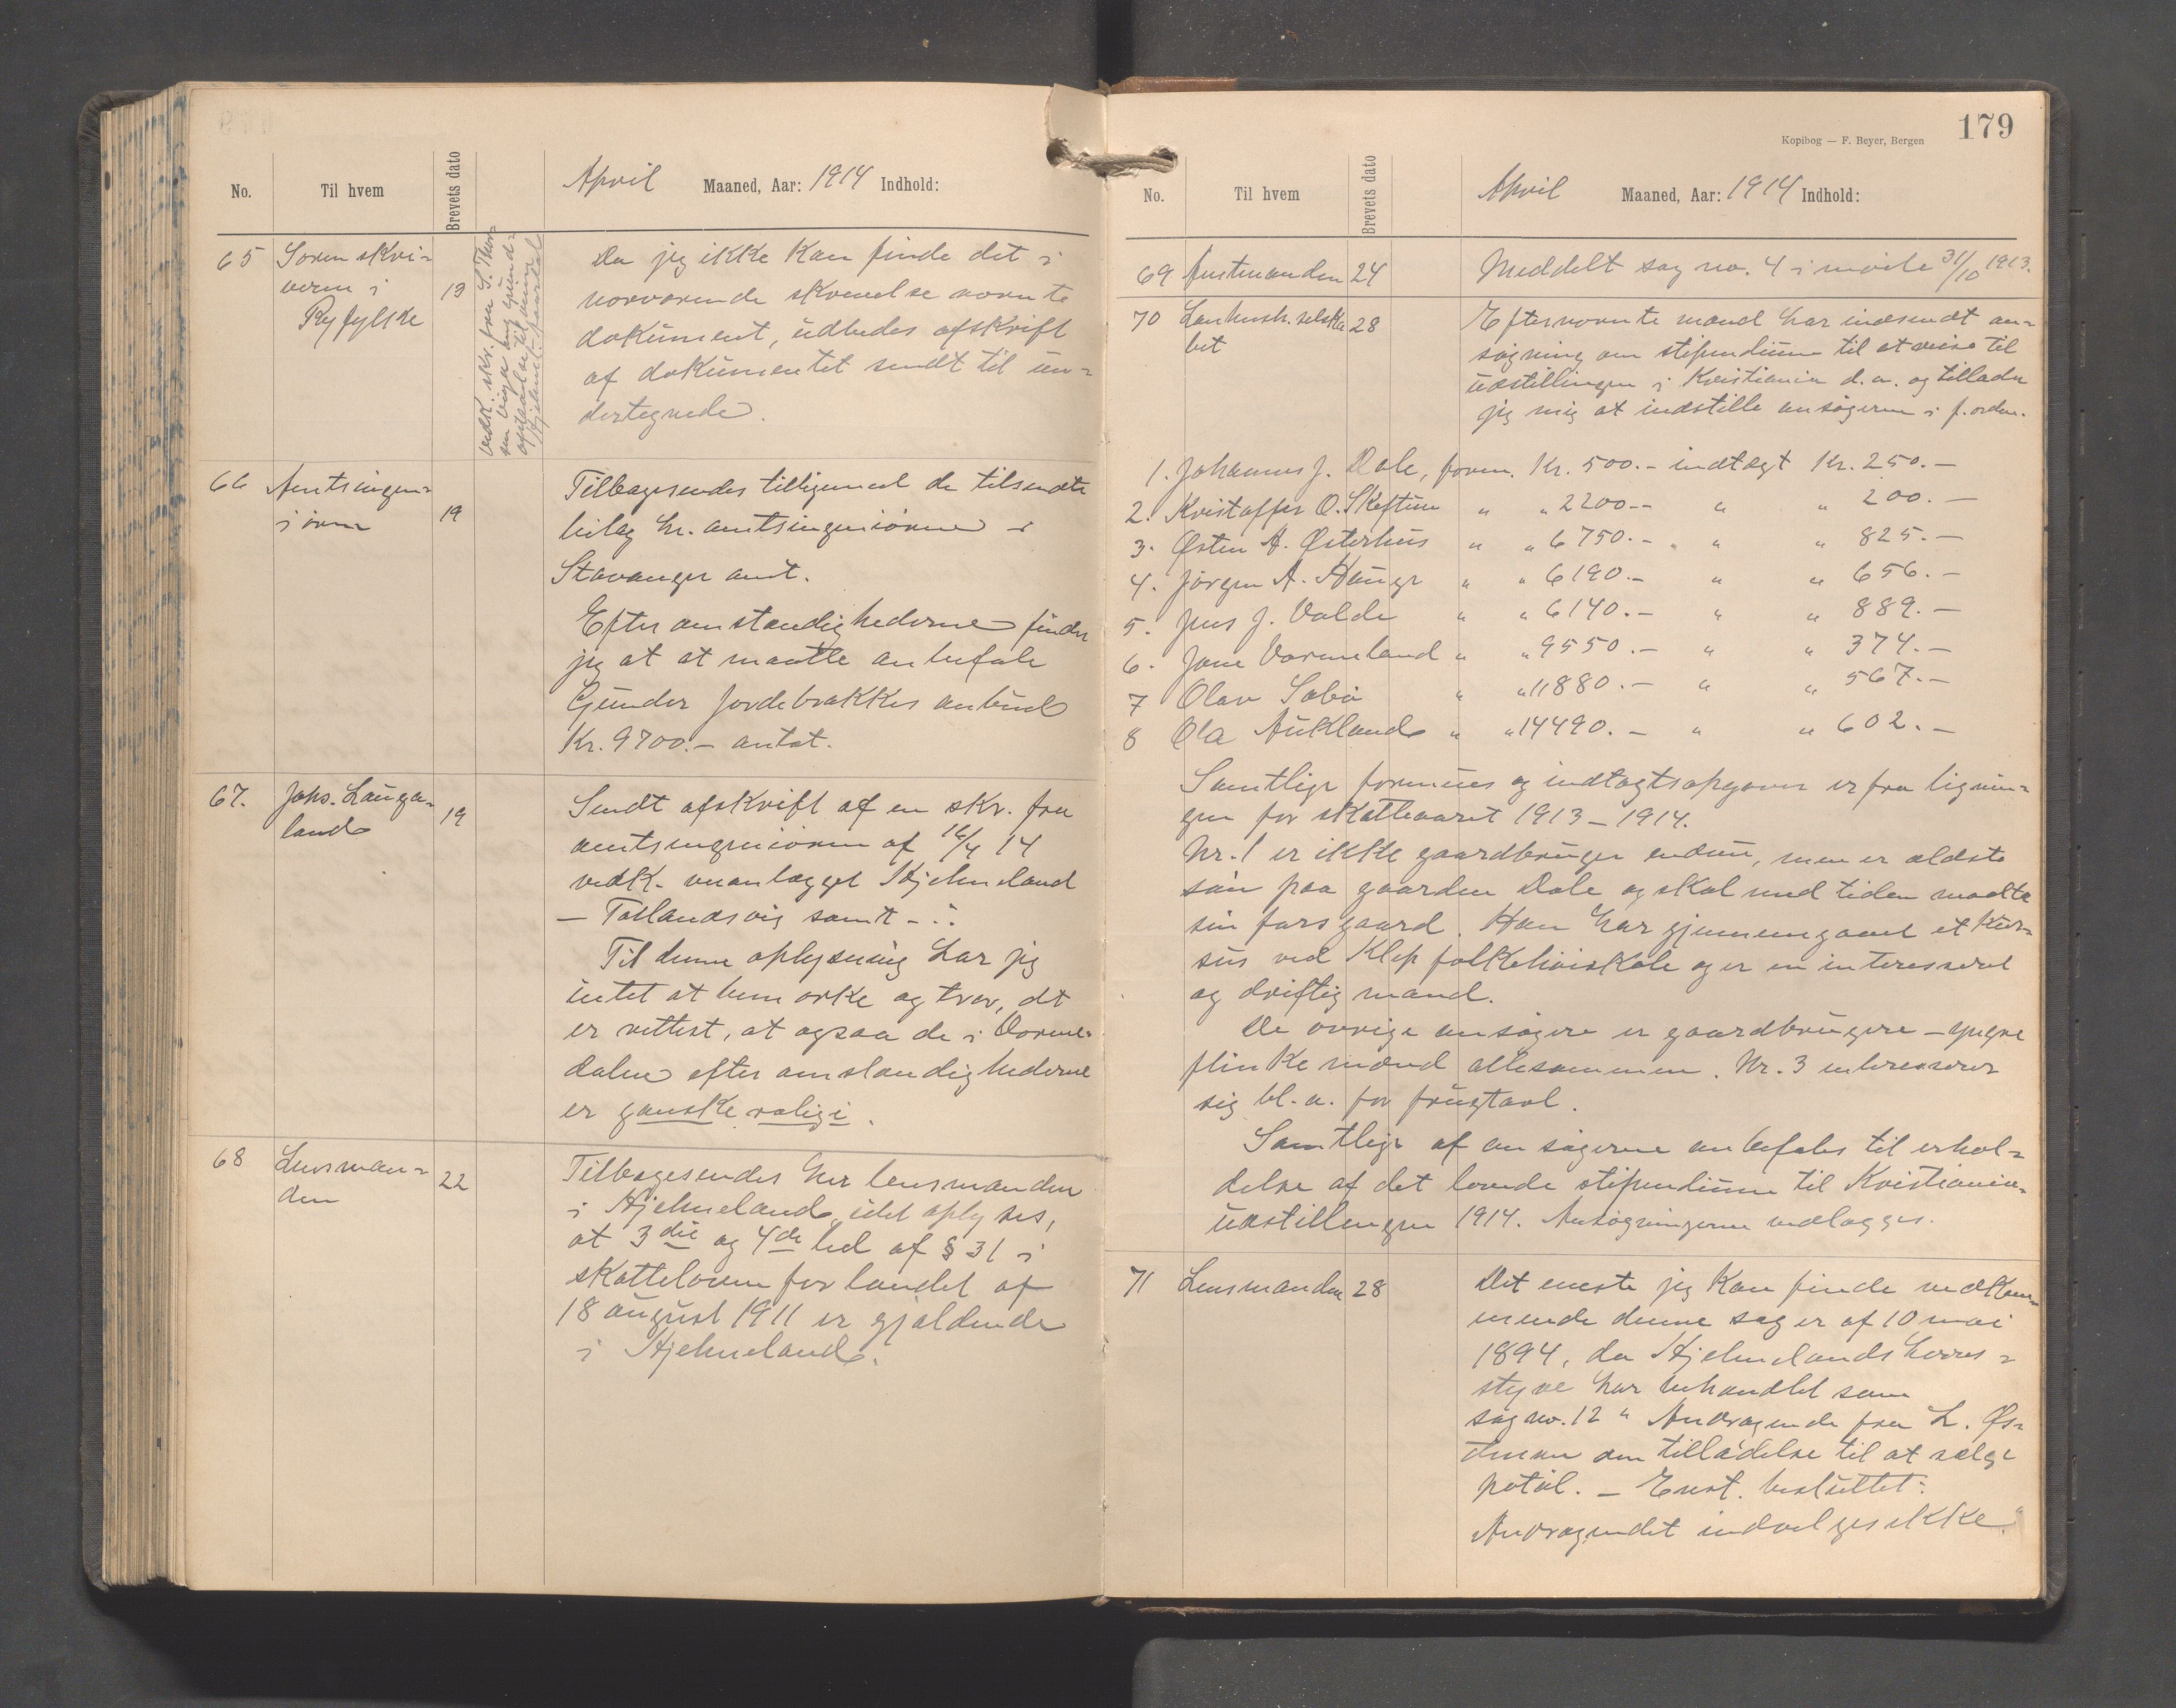 No.
Til hvem
Brevets dato
April Maaned, Aar: 1914 Indhold:
65
Soren skri-
veren i
Ryfylke
13
vedk. skr. fra S. Thor-
sen
Da jeg ikke kan finde det i
nærværende skrivelse nævnte
dokument, udbedes afskrift
af dokumentet sendt til un-
dertegnede.
66
Amtsingen-
iøren
19
Tilbagesendes tilligemed de tilsendte
bilag hr. amtsingeniøren i
Stavanger amt.
Efter omstændighederne finder
jeg at at maatte anbefale
Gunder Jordebrækkes anbud
Kr. 9700.- antat.
67.
Johs. Lauga-
land
19
Sendt afskrift af en skr. fra
amtsingeniøren af 16/4 14
vedk. veianlægget Hjelmeland
- Tøtlandsvig samt -:
Til denne oplysning har jeg
intet at bemærke og tror, dt
er rettest, at ogsaa de i Vorme-
dalen efter omstændighederne
er ganske rolige.
68
Lensman-
den
22
Tilbagesendes herr lensmanden
i Hjelmeland, idet oplyses,
at 3die og 4de led af § 31 i
skatteloven for landet af
18 august 1911 er gjældende
i Hjelmeland.
179
Kopibog — F. Beyer, Bergen
No.
Til hvem
Brevets dato
April Maaned, Aar: 1914 Indhold:
69. Amtmanden 24
Meddelt sag no. 4 i møte 31/10 1913.
70 Landhush. selska-
bet
28
Efternævnte mænd har indsendt an-
søgning om stipendium til at reise til
udstillingen i Kristiania d.a. og tillader
jeg mig at indstille ansøgerne i f. orden.
1. Johannes J. Dale, form. Kr. 500.- indtægt Kr. 250.-
2. Kristoffer O. Skeftun " " 2200.- " " 200.-
3. Østen A. Østerhus " " 6750.- " " 825.-
4. Jørgen A. Hauge " " 6190.- " " 656.-
5. Jens J. Valde " " 6140.- " " 889.-
6. Jone Vormeland " " 9550.- " " 374.-
7 Olav Sabø " " 11880.- " " 567.-
8 Ola Aukland " " 14490.- " " 602.-
Samtlige formues og indtægtsopgaver er fra lignin-
gen for skatteaaret 1913-1914.
Nr. 1 er ikke gaardbruger endnu, men er ældste
søn paa gaarden Dale og skal med tiden modta
sin fars gaard. Han har gjennemgaaet et kur-
sus ved Klep folkehøiskole og er en interesseret
og driftig mand.
De øvrige ansøgere er gaardbrugere - yngre
flinke mænd allesammen. Nr. 3 interesserer
sig bl.a. for frugtavl.
Samtlige af ansøgerne anbefales til erhol-
delse af det lovede stipendium til Kristiania-
udstillingen 1914. Ansøgningerne vedlægges.
71 Lensmanden 28
Det eneste jeg kan finde vedkom-
mende denne sag er af 10 mai
1894, da Hjelmelands herres-
styre har behandlet som
sag no. 12 " Andragende fra L. Øs-
tman om tilladelse til at sælge
patøl. - Enst. besluttet:
Andragendet indvilges ikke."